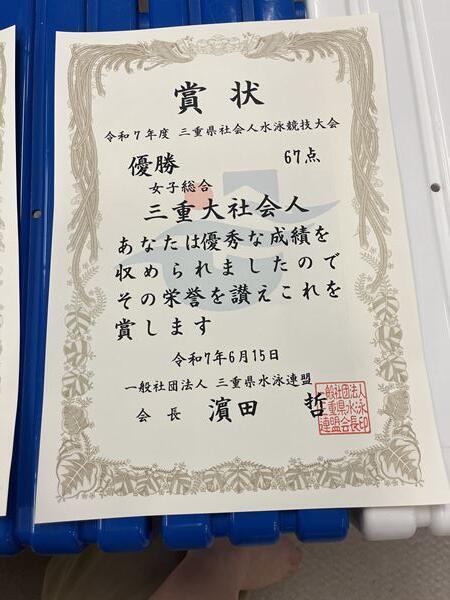 賞状
令和7年度 三重県社会人水泳競技大会
優勝 67点
女子総合
三重大社会人
あなたは優秀な成績を
収められましたので
その栄誉を讃えこれを
賞します
令和7年6月15日
一般社団法人 三重県水泳連盟
会長 濵田 哲
一般社団法人
三重県水泳
連盟会長印